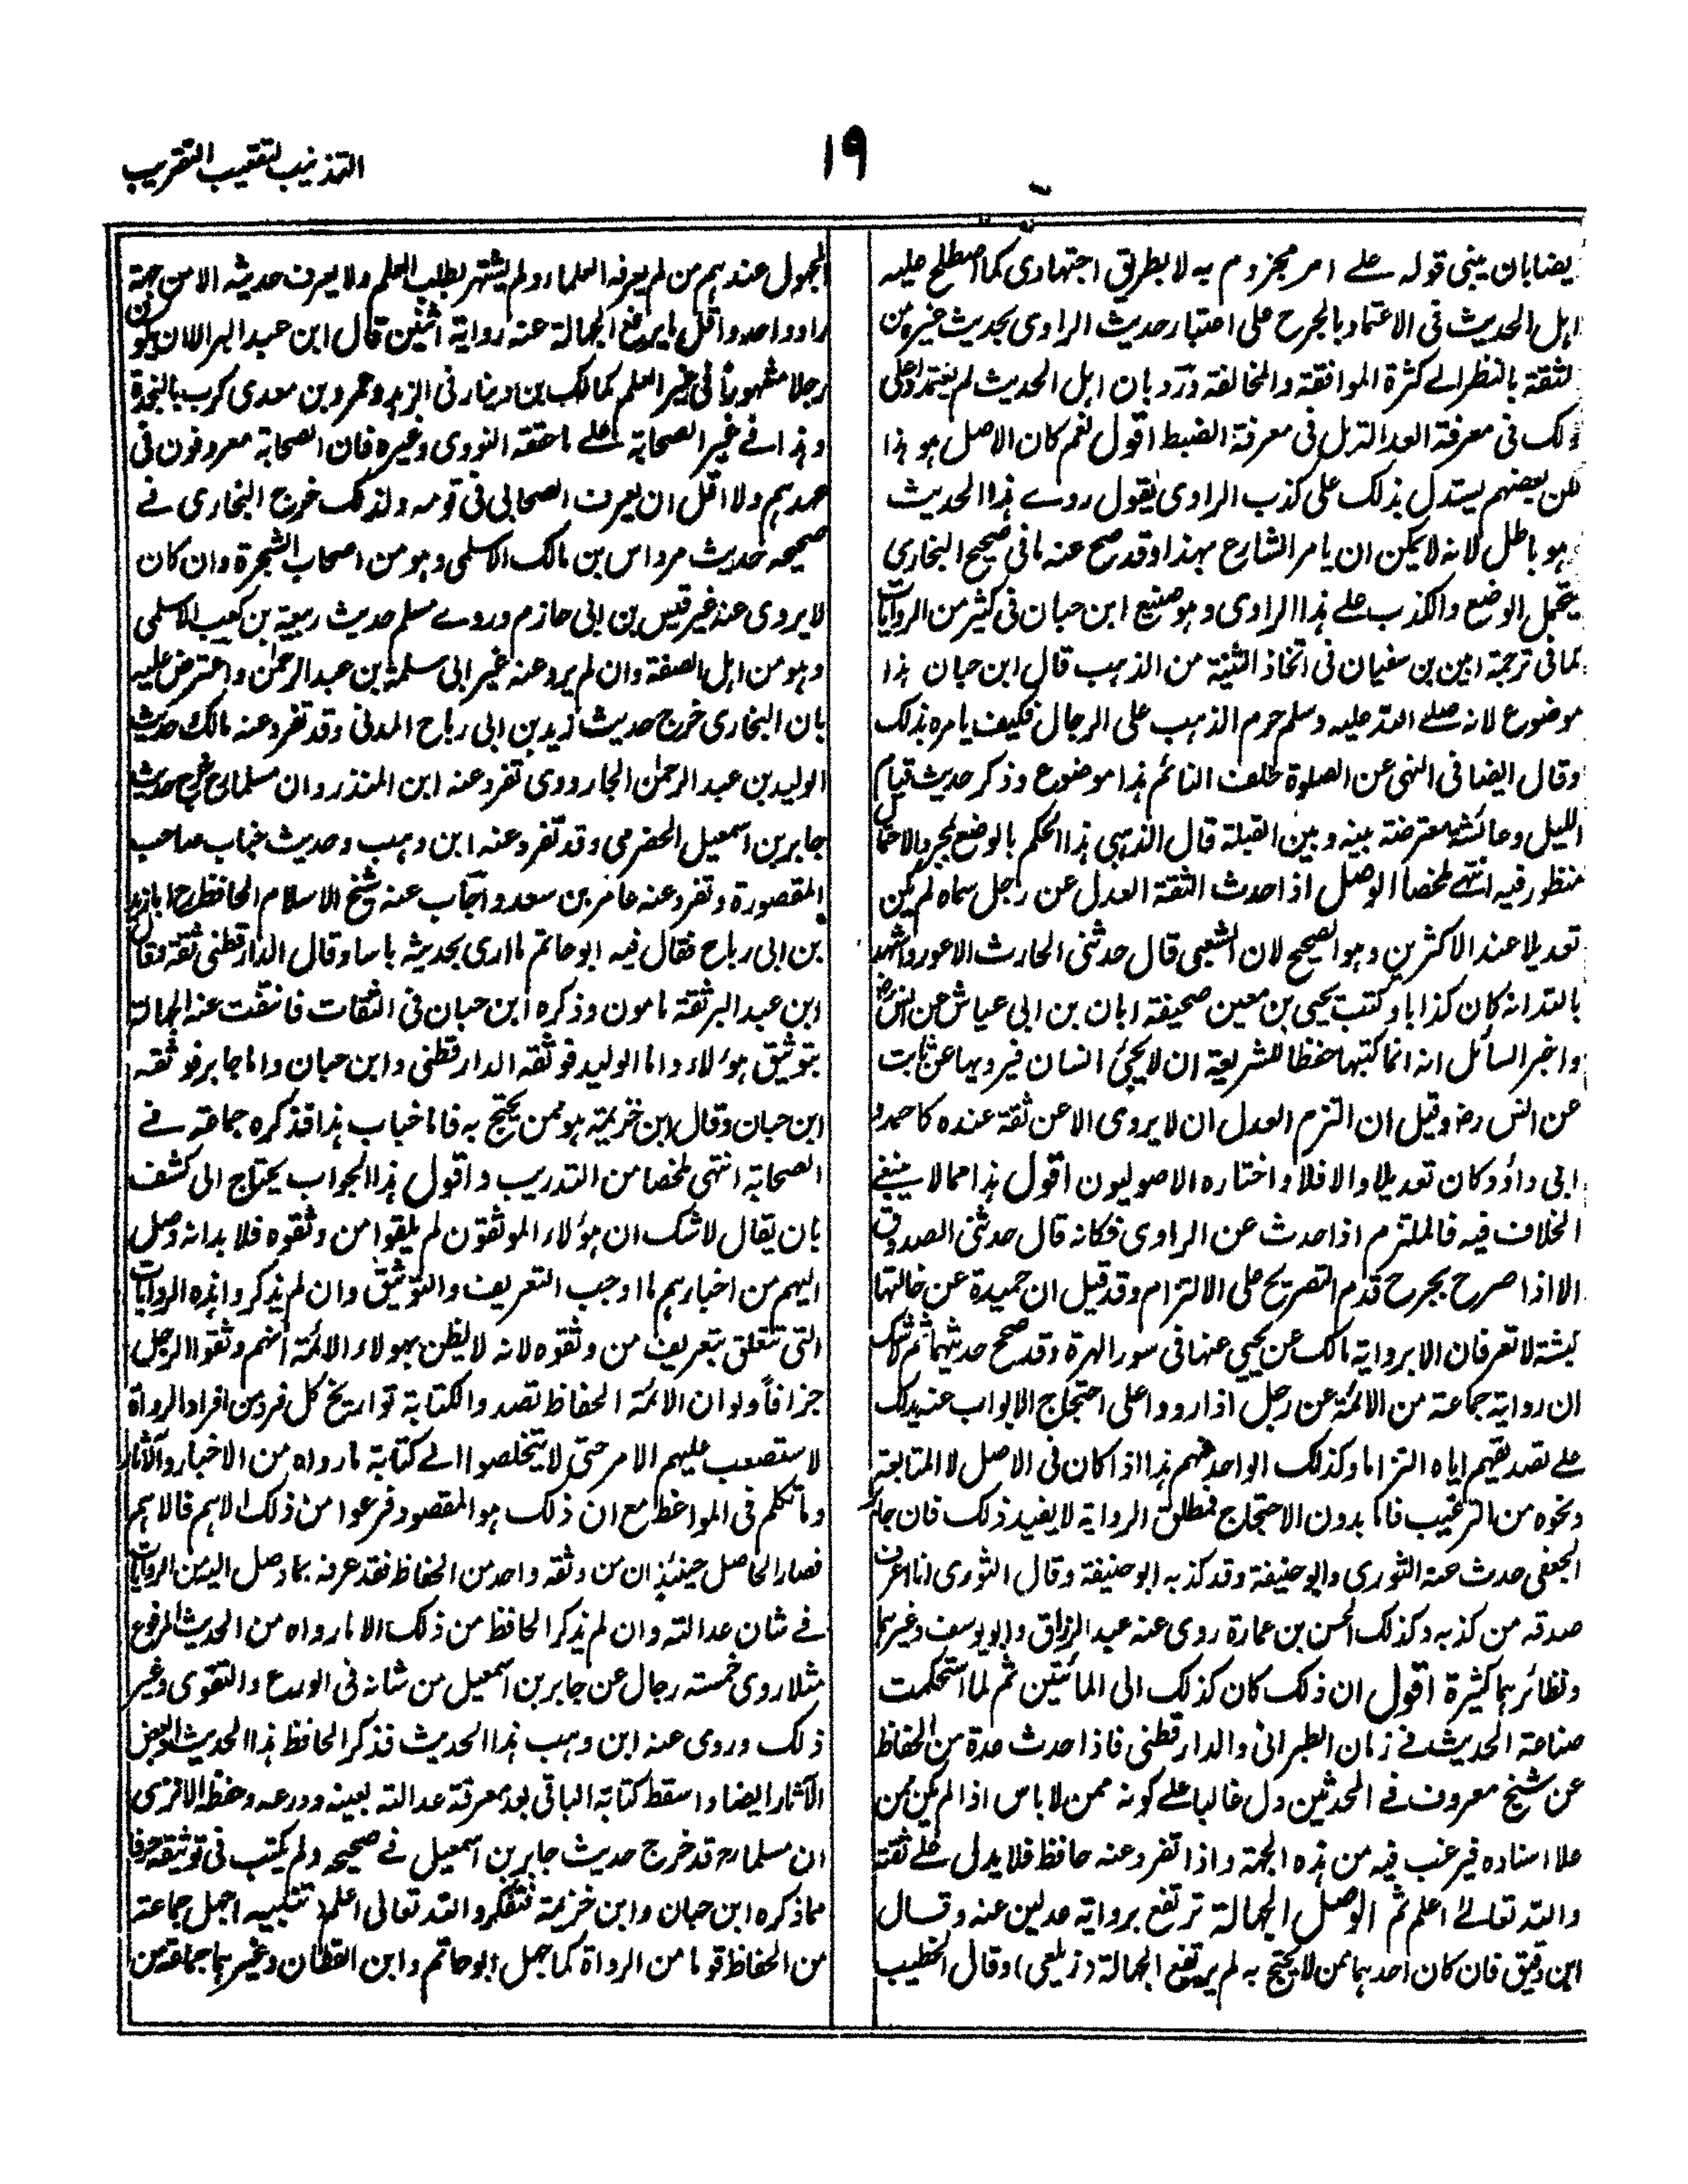 التذنيب لتعقيب التقريب
١٩
يضا بان يبنى قوله على امر مجزوم به لا بطريق اجتهادى كما اصطلح عليه
اهل الحديث فى الاعتماد بالجرح على اعتبار حديث الراوى بحديث غيره من
لثقة بالنظر الى كثرة الموافقة والمخالفة ورد بان اهل الحديث لم يعتمدوا على
ذلك فى معرفة العدالة بل فى معرفة الضبط اقول نعم كان الاصل هو هذا
لكن بعضهم يستدل بذلك على كذب الراوى يقول روى هذا الحديث
وهو باطل لانه لا يمكن ان يامر الشارع بهذا وقد صح عنه ما فى صحيح البخارى
يحمل الوضع والكذب على هذا الراوى وهو صنيع ابن حبان فى كثير من الروايات
كما فى ترجمة ابين بن سفيان فى اتخاذ الثنية من الذهب قال ابن حبان هذا
موضوع لانه صلى الله عليه وسلم حرم الذهب على الرجال فكيف يامره بذلك
وقال ايضا فى النهى عن الصلوة خلف النائم هذا موضوع وذكر حديث قيام
الليل وعائشة معترضة بينه وبين القبلة قال الذهبى هذا الحكم بالوضع بمجرد الاحتمال
منظور فيه انتهى ملخصا الوصل اذا حدث الثقة العدل عن رجل سماه لم يكن
تعديلا عند الاكثرين وهو الصحيح لان الشعبى قال حدثنى الحارث الاعور واشهد
بالله انه كان كذابا وكتب يحيى بن معين صحيفة ابان بن ابى عياش عن انس رض
واخبر السائل انه انما كتبها حفظا للشريعة ان لا يجئ انسان فيرويها عن ثابت
عن انس رض وقيل ان التزم العدل ان لا يروى الا عن ثقة عنده كاحمد و
ابى داؤد كان تعديلا والا فلا واختاره الاصوليون اقول هذا مما لا ينبغى
الخلاف فيه فالملتزم اذا حدث عن الراوى فكانه قال حدثنى الصدوق
الا اذا صرح بجرح قدم التصريح على الالتزام وقد قيل ان حميدة عن خالتها
كبشة لا تعرفان الا برواية مالك عن يحيى عنها فى سور الهرة وقد صح حديثهما ثم لا شك
ان رواية جماعة من الائمة عن رجل اذا رووا على احتجاج الابواب عنه يدلك
على تصديقهم اياه التزاما وكذلك الواحد منهم هذا اذا كان فى الاصل لا المتابعة
ونحوه من الترغيب فاما بدون الاحتجاج فمطلق الرواية لا يفيد ذلك فان جابر
الجعفى حدث عنه الثورى وابو حنيفة وقد كذبه ابو حنيفة وقال الثورى انا اعرف
صدقه من كذبه وكذلك الحسن بن عمارة روى عنه عبد الرزاق وابو يوسف وغيرهما
ونظائرهما كثيرة اقول ان ذلك كان كذلك الى المائتين ثم لما استحكمت
صناعة الحديث فى زمان الطبرانى والدارقطنى فاذا حدث عدة من الحفاظ
عن شيخ معروف فى المحدثين دل غالبا على كونه ممن لا باس اذا لم يكن ممن
علا اسناده فيرغب فيه من هذه الجهة واذا تفرد عنه حافظ فلا يدل على ثقته
والله تعالى اعلم ثم الوصل الجهالة ترتفع برواية عدلين عنه وقال
ابن دقيق فان كان احدهما ممن لا يحتج به لم يرتفع الجهالة (زيلعى) وقال الخطيب
المجهول عندهم من لم يعرفه العلماء ولم يشتهر بطلب العلم ولا يعرف حديثه الا من جهة
راو واحد واقل ما يرفع الجهالة عنه رواية اثنين قال ابن عبد البر الا ان يكون
رجلا مشهورا فى غير العلم كمالك بن دينار فى الزهد وعمرو بن معدى كرب بالنجدة
وهذا فى غير الصحابة على ما حققه النووى وغيره فان الصحابة معروفون فى
عهدهم ولا اقل ان يعرف الصحابى فى قومه ولذلك خرج البخارى فى
صحيحه حديث مرداس بن مالك الاسلمى وهو من اصحاب الشجرة وان كان
لا يروى عنه غير قيس بن ابى حازم وروى مسلم حديث ربيعة بن كعب الاسلمى
وهو من اهل الصفة وان لم يرو عنه غير ابى سلمة بن عبد الرحمٰن واعترض عليه
بان البخارى خرج حديث زيد بن ابى رباح المدنى وقد تفرد عنه مالك وحديث
الوليد بن عبد الرحمٰن الجارودى تفرد عنه ابن المنذر وان مسلما خرج حديث
جابر بن اسمعيل الحضرمى وقد تفرد عنه ابن وهب وحديث خباب صاحب
المقصورة وتفرد عنه عامر بن سعد واجاب عنه شيخ الاسلام الحافظ رح اما زيد
بن ابى رباح فقال فيه ابو حاتم ما ارى بحديثه باسا وقال الدارقطنى ثقة وقال
ابن عبد البر ثقة مامون وذكره ابن حبان فى الثقات فانتفت عنه الجهالة
بتوثيق هؤلاء واما الوليد فوثقه الدارقطنى وابن حبان واما جابر فوثقه
ابن حبان وقال ابن خزيمة هو ممن يحتج به فاما خباب هذا فذكره جماعة فى
الصحابة انتهى ملخصا من التدريب واقول هذا الجواب يحتاج الى كشف
بان يقال لا شك ان هؤلاء الموثقون لم يلقوا من وثقوه فلا بد انه وصل
اليهم من اخبارهم ما اوجب التعريف والتوثيق وان لم يذكروا هذه الروايات
التى تتعلق بتعريف من وثقوه لانه لا يظن بهولاء الائمة انهم وثقوا الرجل
جزافاً ولو ان الائمة الحفاظ تصدوا لكتابة تواريخ كل فرد من افراد الرواة
لاستصعب عليهم الامر حتى لا يتخلصوا الى كتابة ما رواه من الاخبار والآثار
وما تكلم فى المواعظ مع ان ذلك هو المقصود ففرعوا من ذلك الاهم فالاهم
فصار الحاصل حينئذ ان من وثقه واحد من الحفاظ فقد عرفه بما وصل اليه من الروايات
فى شان عدالته وان لم يذكر الحافظ من ذلك الا ما رواه من الحديث المرفوع
مثلا روى خمسة رجال عن جابر بن اسمعيل من شانه فى الورع والتقوى وغير
ذلك وروى عنه ابن وهب هذا الحديث فذكر الحافظ هذا الحديث وبعض
الآثار ايضا واسقط كتابة الباقى بعد معرفة عدالته بعينه وورعه وحفظه الا ترى
ان مسلما رح قد خرج حديث جابر بن اسمعيل فى صحيحه ولم يكتب فى توثيقه حرفا
مما ذكره ابن حبان وابن خزيمة فتفكر والله تعالى اعلم تنبيه اجهل جماعة
من الحفاظ قوما من الرواة كما جهل ابو حاتم وابن القطان وغيرهما جماعة من